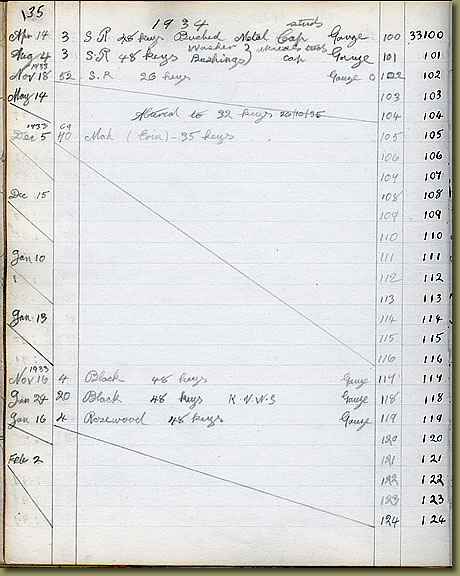 135
1934
studs
Apr 14 3 S.R 48 keys Bushed Metal Cap Gauze 100 33100
Aug 4 3 S.R 48 keys Washer & Bushings cap Gauze 101 101
1933
Nov 18 52 S.R 26 keys Gauze 0 102 102
May 14 103 103
Altered to 32 keys 104 104
1933
Dec 5 70 Mah (Coin) - 35 keys 105 105
106 106
107 107
Dec 15 108 108
109 109
110 110
Jan 10 111 111
112 112
113 113
Jan 13 114 114
115 115
116 116
1933
Nov 16 4 Black 48 keys Gauze 117 117
Jan 24 20 Black 48 keys Gauze 118 118
Jan 16 4 Rosewood 48 keys Gauze 119 119
120 120
Feb 2 121 121
122 122
123 123
124 124